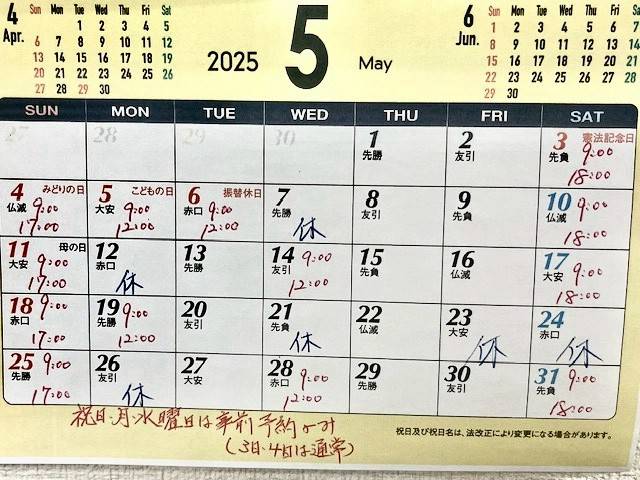 4 Apr. 2025 5 May 6 Jun.
1 2 3 4 5
6 7 8 9 10 11 12
13 14 15 16 17 18 19
20 21 22 23 24 25 26
27 28 29 30
1 2 3 4 5 6 7
8 9 10 11 12 13 14
15 16 17 18 19 20 21
22 23 24 25 26 27 28
29 30
SUN MON TUE WED THU FRI SAT
27 28 29 30 1 先勝 2 友引 3 憲法記念日 先負 9:00 18:00
4 みどりの日 仏滅 9:00 17:00 5 こどもの日 大安 9:00 12:00 6 振替休日 赤口 9:00 12:00 7 先勝 休 8 友引 9 先負 10 仏滅 9:00 18:00
11 母の日 大安 9:00 17:00 12 赤口 休 13 先勝 14 友引 9:00 12:00 15 先負 16 仏滅 17 大安 9:00 18:00
18 赤口 9:00 17:00 19 先勝 9:00 12:00 20 友引 21 先負 休 22 仏滅 23 大安 休 24 赤口 休
25 先勝 9:00 17:00 26 友引 休 27 大安 28 赤口 9:00 12:00 29 先勝 30 友引 31 先負 9:00 18:00
祝日・月・水曜日は事前予約のみ
(3日・4日は通常)
祝日及び祝日名は、法改正により変更になる場合があります。